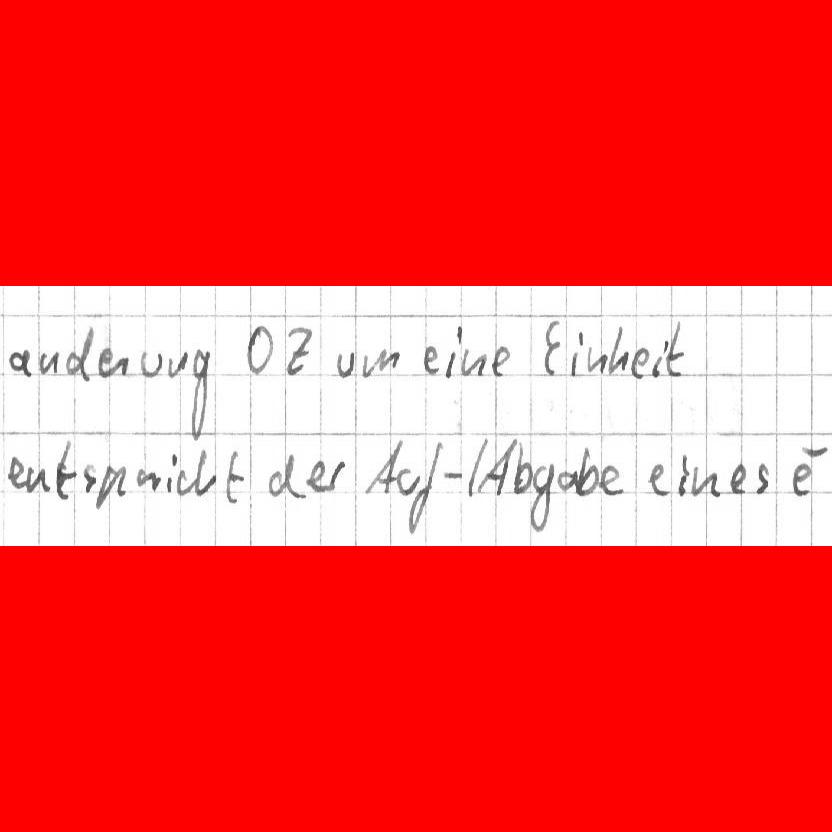 anderung OZ um eine Einheit
entspricht der Auf-/Abgabe eines e⁻